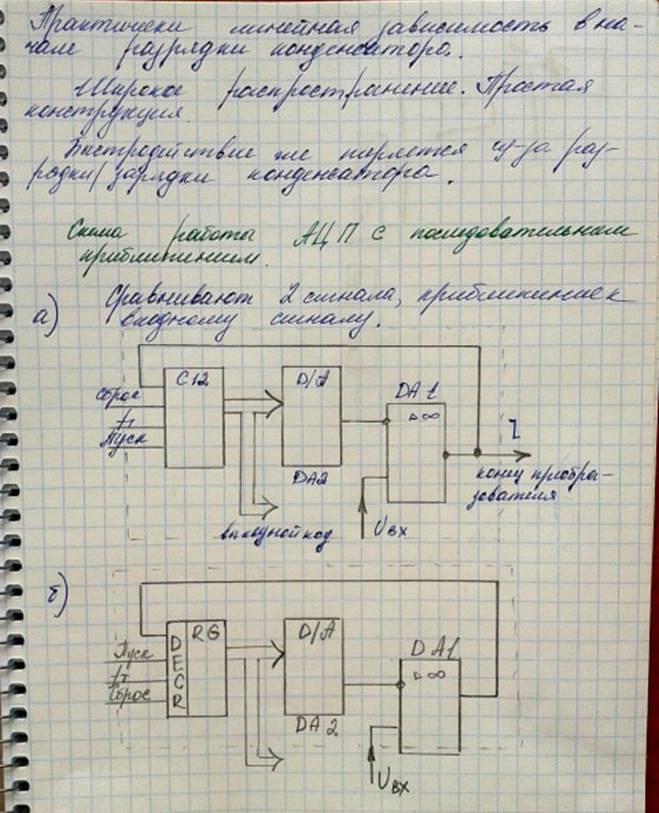 Практически линейная зависимость в на-
чале разрядки конденсатора.
Широкое распространение. Простая
конструкция.
Быстродействие же теряется из-за раз-
рядки/зарядки конденсатора.
Схема работы АЦП с последовательным
приближением.
а) Сравнивают 2 сигнала, приближение к
входному сигналу.
Сброс
fт
Пуск
D/A
DA1
▷∞
DA2
конец преобра-
зователя
выходной код
Uвх
б)
Пуск
fт
Сброс
D
E
C
R
RG
D/A
DA1
▷∞
DA2
Uвх